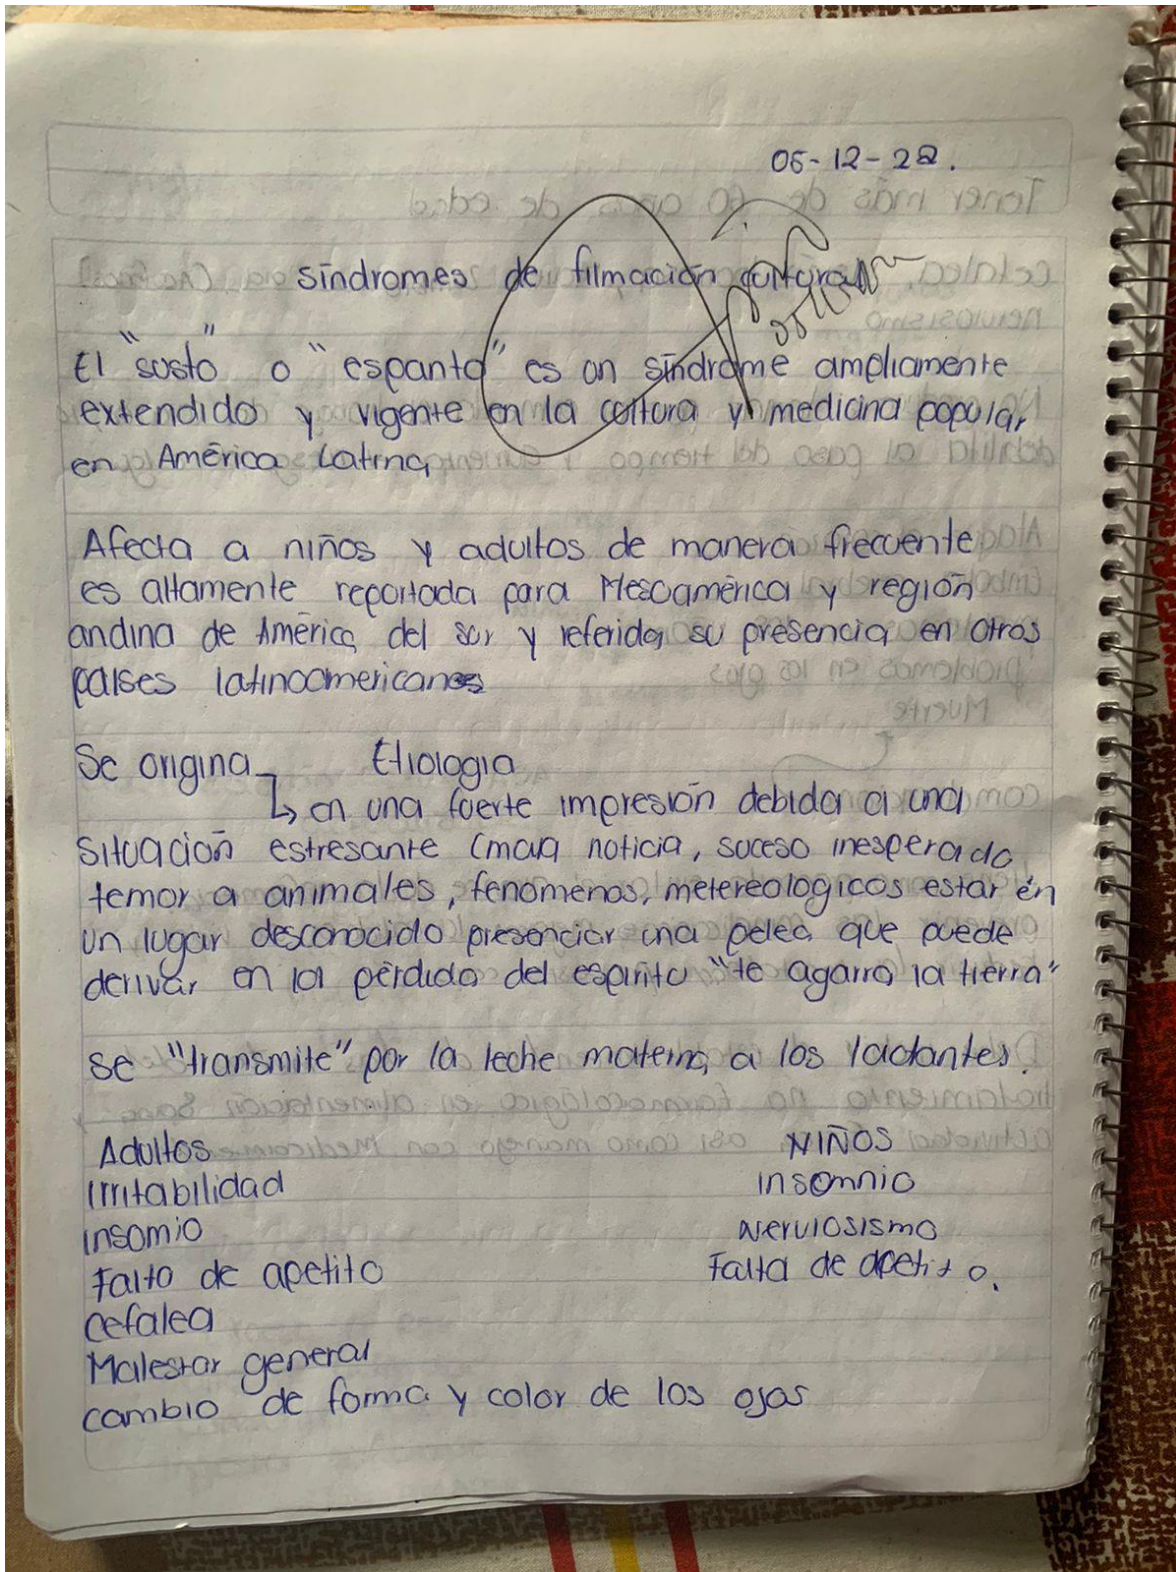 05-12-22.
síndromes de filmación cultural
El "susto" o "espanto" es un síndrome ampliamente
extendido y vigente en la cultura y medicina popular
en América Latina
Afecta a niños y adultos de manera frecuente
es altamente reportada para Mesoamérica y región
andina de América del sur y referida su presencia en otros
países latinoamericanos
Se origina Etiologia
↳ en una fuerte impresión debida a una
situación estresante (mala noticia, suceso inesperado,
temor a animales, fenomenos, metereologicos estar en
un lugar desconocido presenciar una pelea que puede
derivar en la pérdida del espiritu "te agarra la tierra"
se "transmite" por la leche materna a los lactantes.
Adultos NIÑOS
Irritabilidad insomnio
insomio Nerviosismo
Falta de apetito Falta de apetito.
cefalea
Malestar general
cambio de forma y color de los ojos